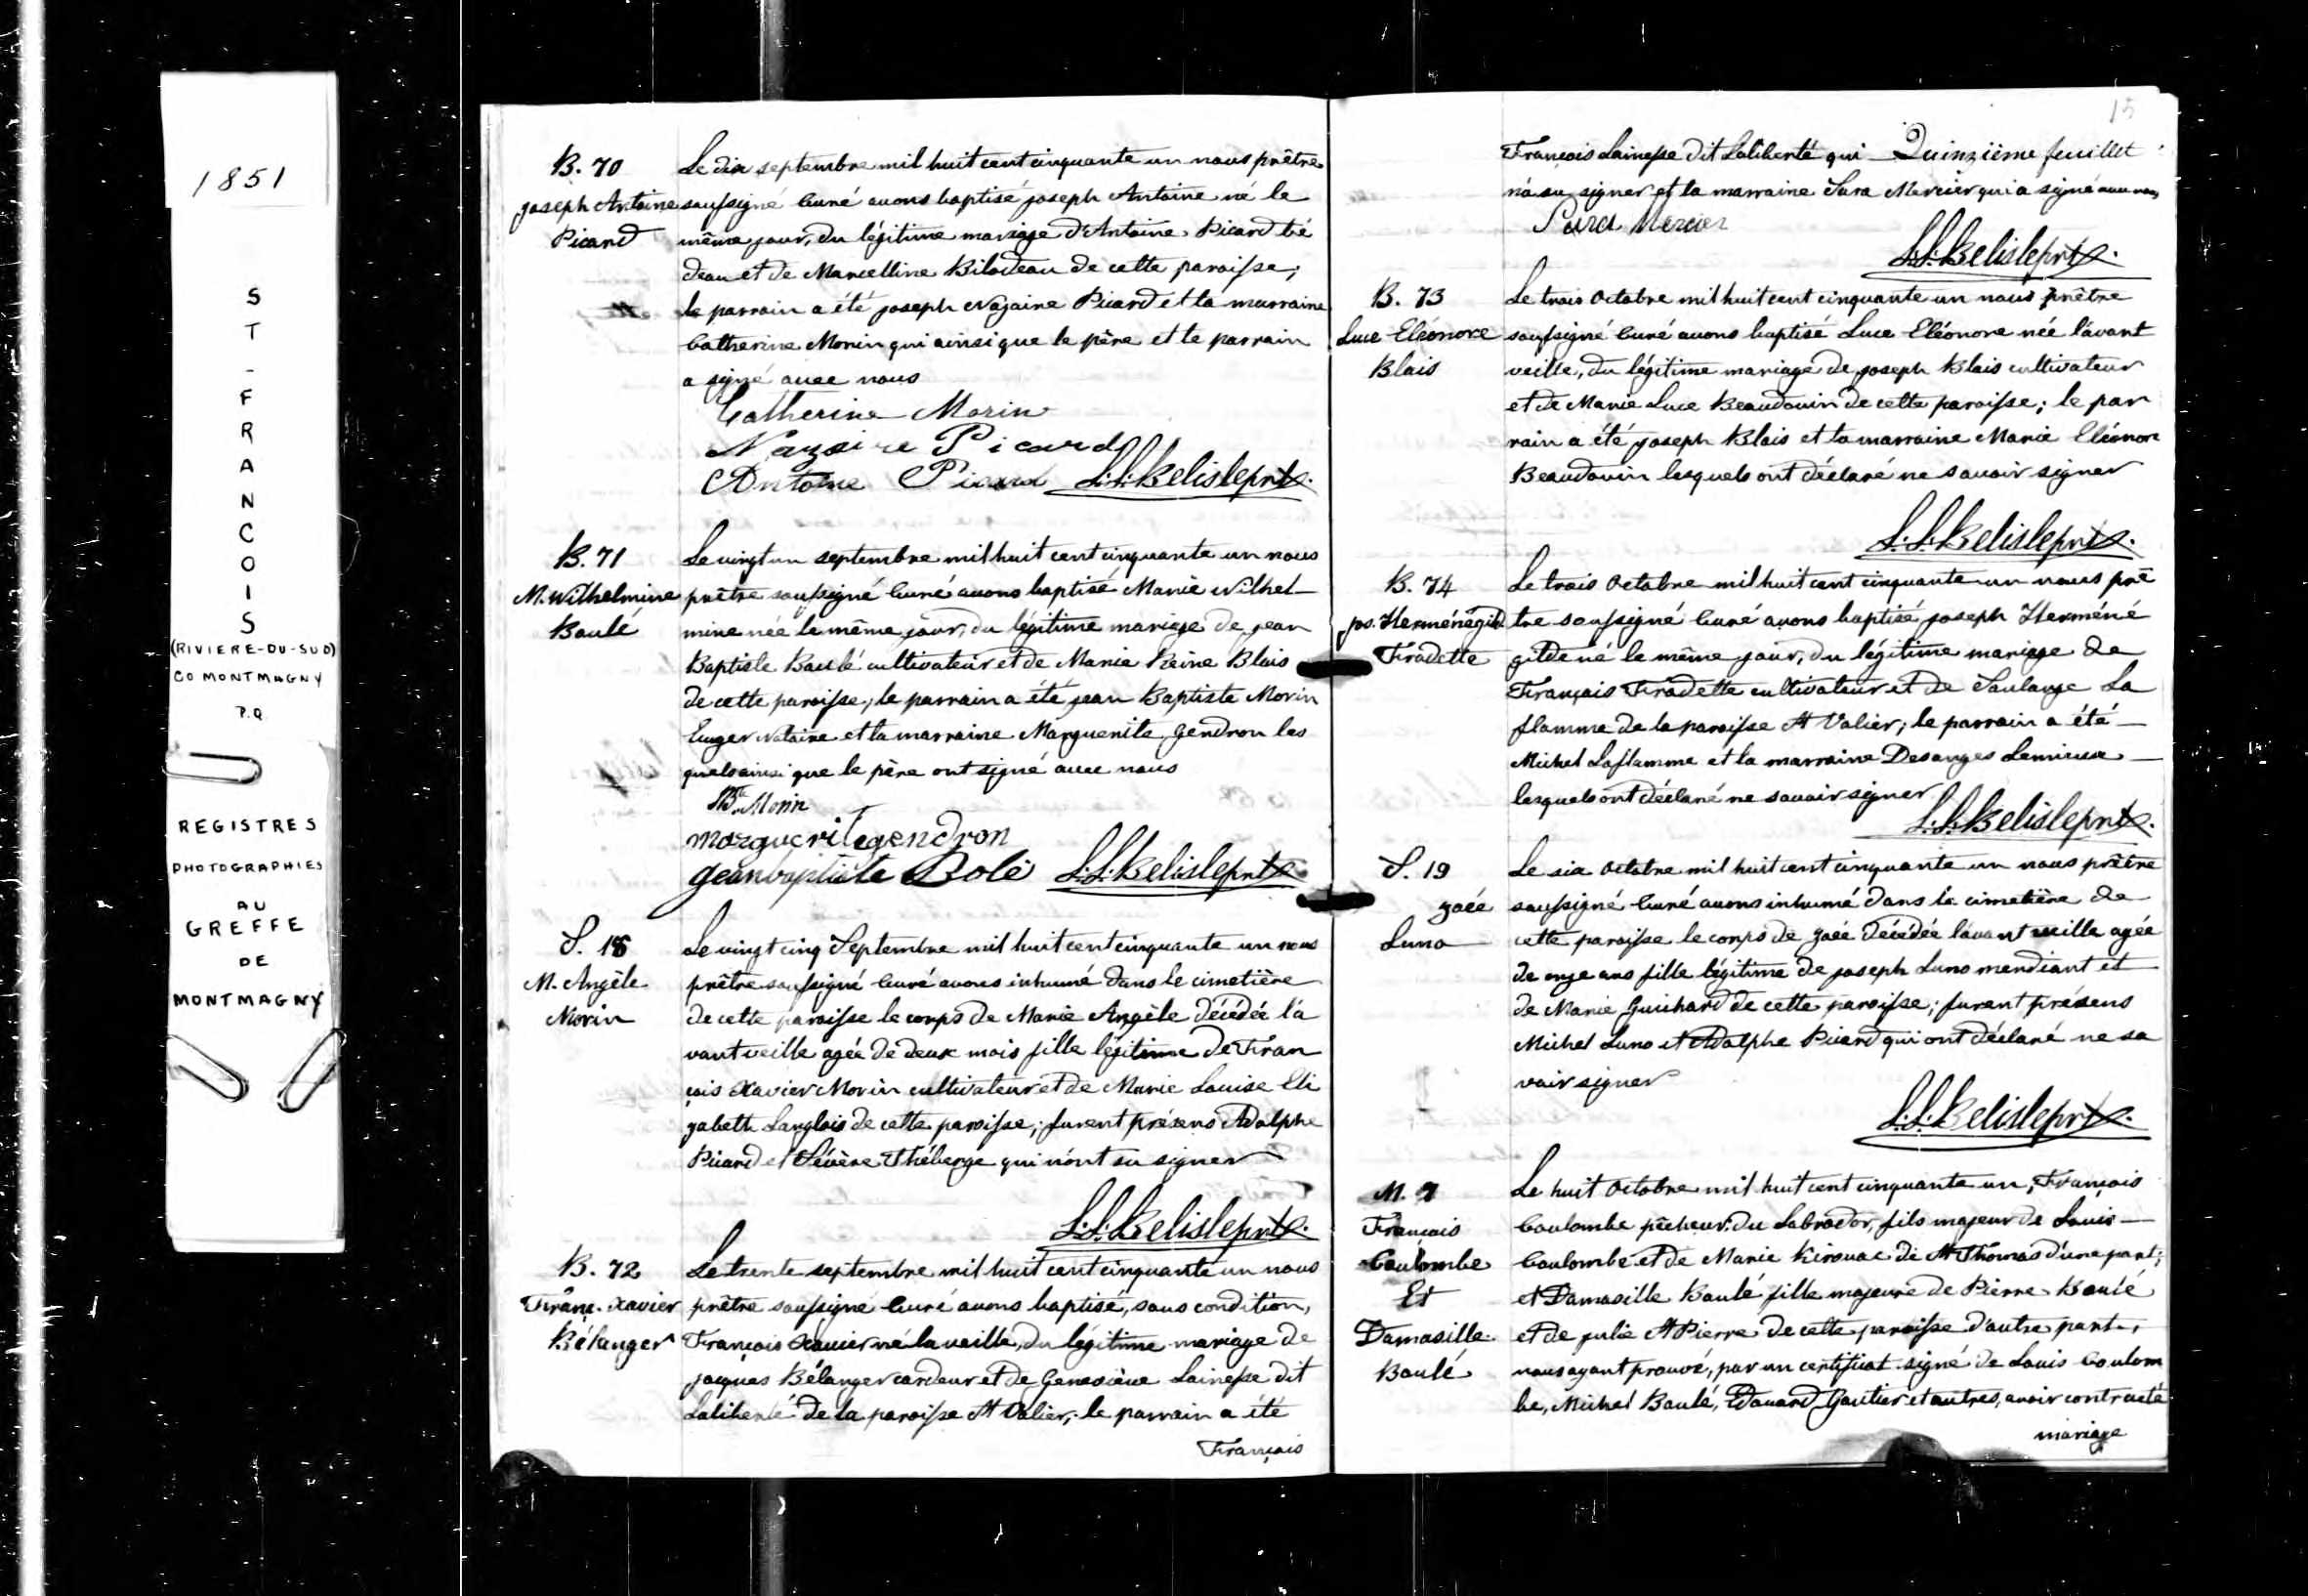 1851
ST-FRANCOIS
(RIVIERE-DU-SUD)
CO MONTMAGNY
P.Q
REGISTRES
PHOTOGRAPHIES
AU
GREFFE
DE
MONTMAGNY
B. 70
joseph Antoine
Picard
Le dix septembre mil huit cent cinquante un nous prêtre
soussigné Curé avons baptisé joseph Antoine né le
même jour, du légitime mariage d'Antoine Picard bé
deau et de Marcelline Bilodeau de cette paroisse;
le parrain a été joseph Nazaire Picard et la marraine
Catherine Morin qui ainsi que le père et le parrain
a signé avec nous
Catherine Morin
Nazaire Picard
Antoine Picard L.L.Belisle ptre.
B. 71
M. Wilhelmine
Baulé
Le vingt un septembre mil huit cent cinquante un nous
prêtre soussigné Curé avons baptisé Marie Wilhel
mine née le même jour, du légitime mariage de jean
Baptiste Baulé cultivateur et de Marie Reine Blais
de cette paroisse; le parrain a été jean Baptiste Morin
Ecuyer Notaire et la marraine Marguerite Gendron les
quels ainsi que le père ont signé avec nous
JBte Morin
marguerite gendron
jean baptiste Bolé L.L.Belisle ptre.
S. 18
M. Angèle
Morin
Le vingt cinq Septembre mil huit cent cinquante un nous
prêtre soussigné Curé avons inhumé dans le cimetière
de cette paroisse le corps de Marie Angèle décédée l'a
vant veille agée de deux mois fille légitime de Fran
çois Xavier Morin cultivateur et de Marie Louise Eli
zabeth Langlois de cette paroisse; furent présens Adolphe
Picard et Sévère Théberge qui n'ont su signer
L.L.Belisle ptre.
B. 72
Franç. Xavier
Bélanger
Le trente septembre mil huit cent cinquante un nous
prêtre soussigné Curé avons baptisé, sous condition,
François Xavier né la veille, du légitime mariage de
jacques Bélanger cardeur et de Geneviève Lainesse dit
Laliberté de la paroisse St Valier; le parrain a été
François
15
Quinzième feuillet
François Lainesse dit Laliberté qui
n'a su signer et la marraine Sara Mercier qui a signé avec nous
Sara Mercier
L.L.Belisle ptre.
B. 73
Luce Eléonore
Blais
Le trois Octobre mil huit cent cinquante un nous prêtre
soussigné Curé avons baptisé Luce Eléonore née l'avant
veille, du légitime mariage de joseph Blais cultivateur
et de Marie Luce Beaudouin de cette paroisse; le par
rain a été joseph Blais et la marraine Marie Eléonore
Beaudouin lesquels ont déclaré ne savoir signer
L.L.Belisle ptre.
B. 74
jos. Herménégild
Fradette
Le trois Octobre mil huit cent cinquante un nous prê
tre soussigné Curé avons baptisé joseph Herméné
gilde né le même jour, du légitime mariage de
François Fradette cultivateur et de Soulange La
flamme de la paroisse St Valier; le parrain a été
Michel Laflamme et la marraine Desanges Lemieux
lesquels ont déclaré ne savoir signer
L.L.Belisle ptre.
S. 19
zoée
Luno
Le six Octobre mil huit cent cinquante un nous prêtre
soussigné Curé avons inhumé dans le cimetière de
cette paroisse le corps de zoée décédée l'avant veille agée
de onze ans fille légitime de joseph Luno mendiant et
de Marie Guichard de cette paroisse; furent présens
Michel Luno et Adolphe Picard qui ont déclaré ne sa
voir signer
L.L.Belisle ptre.
M. 7
François
Coulombe
Et
Damasille
Baulé
Le huit Octobre mil huit cent cinquante un, François
Coulombe pêcheur du Labrador, fils majeur de Louis
Coulombe et de Marie Kirouac de St Thomas d'une part;
et Damasille Baulé fille majeure de Pierre Baulé
et de julie St Pierre de cette paroisse d'autre part,
nous ayant prouvé, par un certificat signé de Louis Coulom
be, Michel Baulé, Edouard Gautier et autres, avoir contracté
mariage